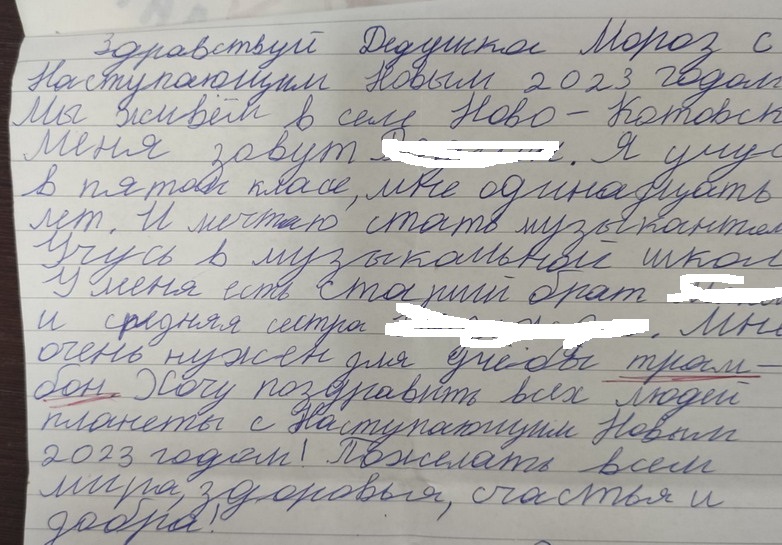 Здравствуй Дедушка Мороз с
Наступающим Новым 2023 годом
Мы живём в селе Ново-Котовск
Меня зовут . Я учус
в пятом класе, мне одинадцать
лет. И мечтаю стать музыкантом
Учусь в музыкальной школ
У меня есть старший брат
и средняя сестра . Мне
очень нужен для учебы тром-
бон. Хочу поздравить всех людей
планеты с Наступающим Новым
2023 годом! Пожелать всем
мира, здоровья, счастья и
добра!